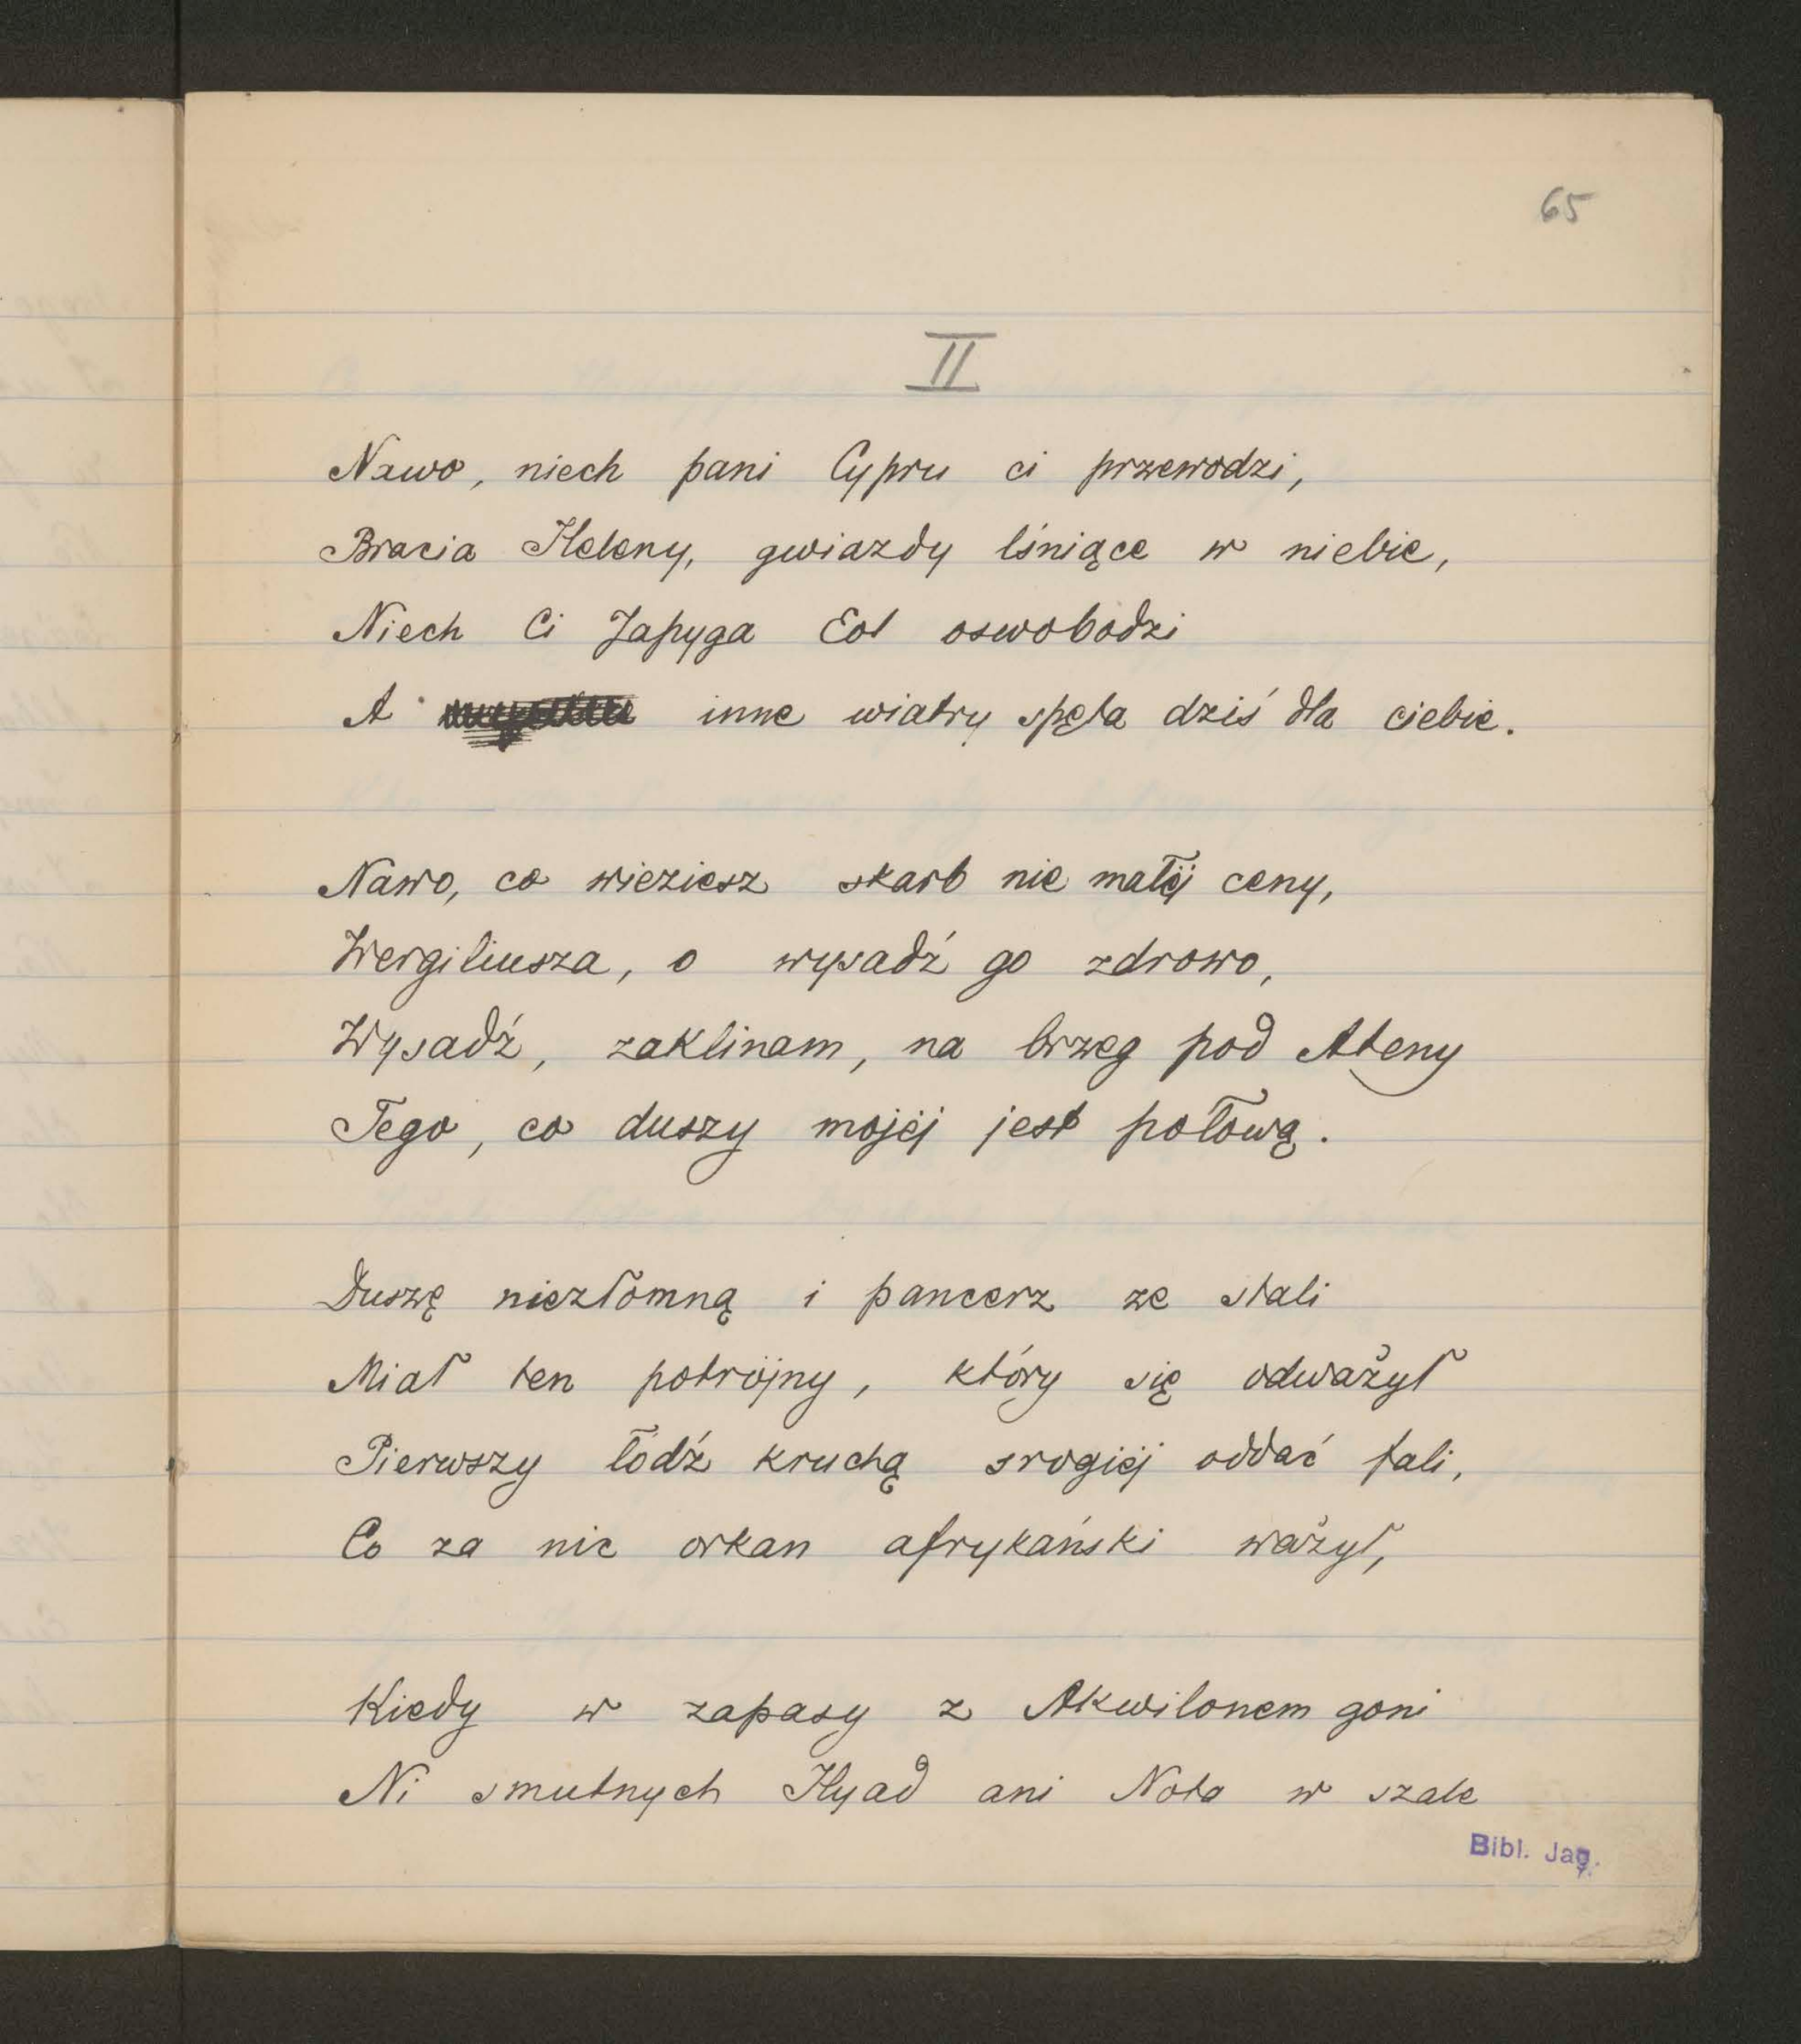 65
II
Nawo, niech pani Cypru ci przewodzi,
Bracia Heleny, gwiazdy lśniące w niebie,
Niech Ci Japyga Eol oswobodzi
A inne wiatry spęta dziś dla ciebie.
Nawo, co wieziesz skarb nie małéj ceny,
Wergiliusza, o wysadź go zdrowo,
Wysadź, zaklinam, na brzeg pod Ateny
Tego, co duszy mojéj jest połową.
Duszę niezłomną i pancerz ze stali
Miał ten potrójny, który się odważył
Pierwszy łódź kruchą srogiéj oddać fali,
Co za nic orkan afrykański ważył,
Kiedy w zapasy z Akwilonem goni
Ni smutnych Hyad ani Nota w szale
Bibl. Jag.